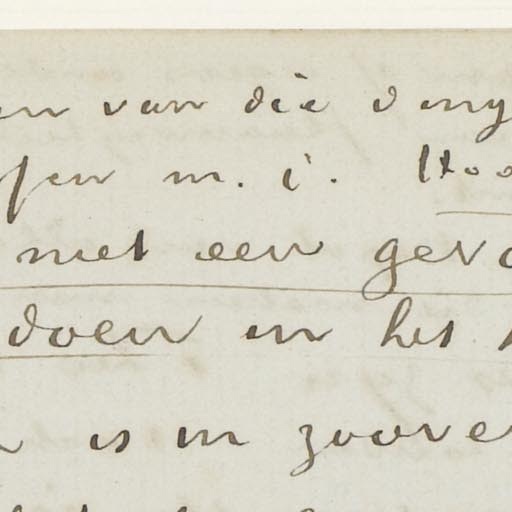 en van die ding
fen m. i. Hoo
met een gev
doen en het
is in zoover